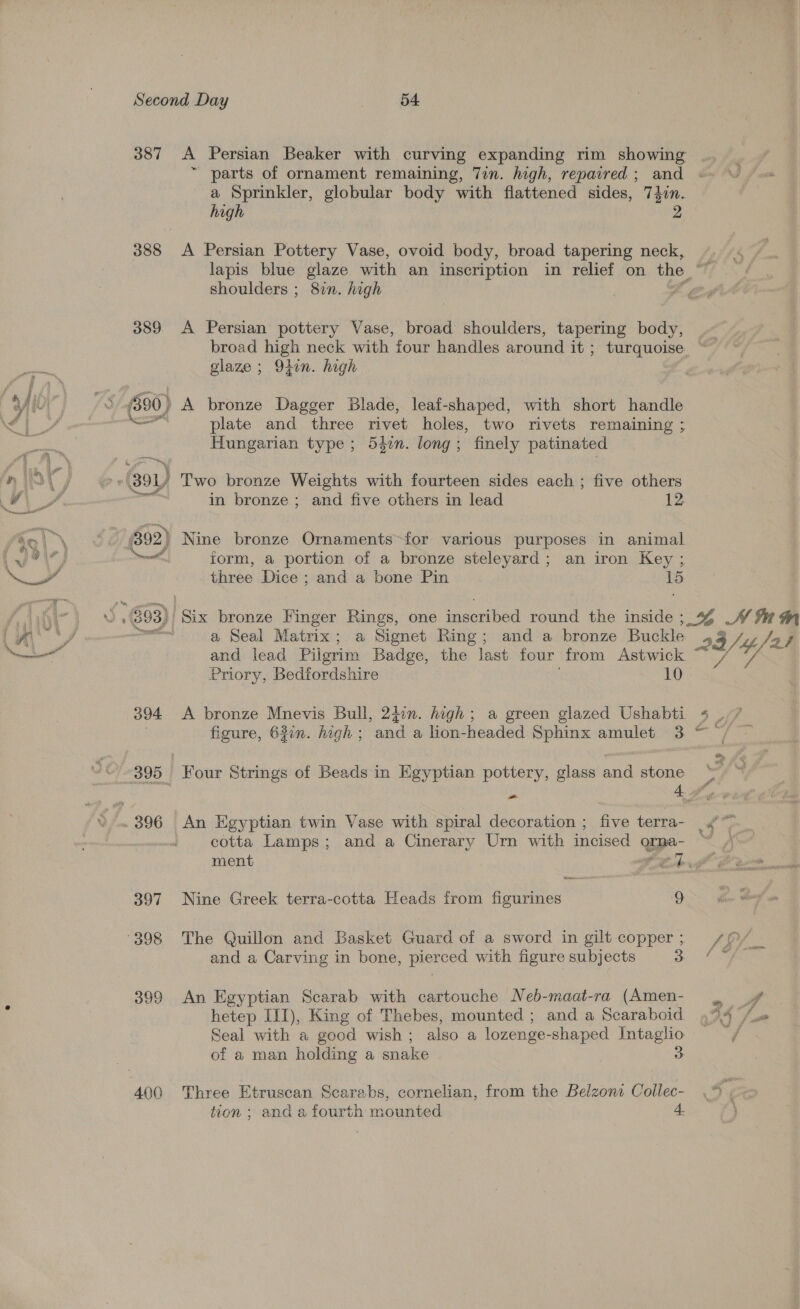 Second Day 54
387 A Persian Beaker with curving expanding rim showing
parts of ornament remaining, 7in. high, repaired ; and
a Sprinkler, globular body with flattened sides, 7½in.
high 2
388 A Persian Pottery Vase, ovoid body, broad tapering neck,
lapis blue glaze with an inscription in relief on the
shoulders ; 8in. high
389 A Persian pottery Vase, broad shoulders, tapering body,
broad high neck with four handles around it ; turquoise
glaze ; 9½in. high
390 A bronze Dagger Blade, leaf-shaped, with short handle
plate and three rivet holes, two rivets remaining ;
Hungarian type ; 5½in. long ; finely patinated
391 Two bronze Weights with fourteen sides each ; five others
in bronze ; and five others in lead 12
392 Nine bronze Ornaments for various purposes in animal
form, a portion of a bronze steleyard ; an iron Key ;
three Dice ; and a bone Pin 15
393 Six bronze Finger Rings, one inscribed round the inside ;
a Seal Matrix ; a Signet Ring ; and a bronze Buckle
and lead Pilgrim Badge, the last four from Astwick
Priory, Bedfordshire 10
394 A bronze Mnevis Bull, 2½in. high ; a green glazed Ushabti
figure, 6¾in. high ; and a lion-headed Sphinx amulet 3
395 Four Strings of Beads in Egyptian pottery, glass and stone
4
396 An Egyptian twin Vase with spiral decoration ; five terra-
cotta Lamps ; and a Cinerary Urn with incised orna-
ment 7
397 Nine Greek terra-cotta Heads from figurines 9
398 The Quillon and Basket Guard of a sword in gilt copper ;
and a Carving in bone, pierced with figure subjects 3
399 An Egyptian Scarab with cartouche Neb-maat-ra (Amen-
hetep III), King of Thebes, mounted ; and a Scaraboid
Seal with a good wish ; also a lozenge-shaped Intaglio
of a man holding a snake 3
400 Three Etruscan Scarabs, cornelian, from the Belzoni Collec-
tion ; and a fourth mounted 4